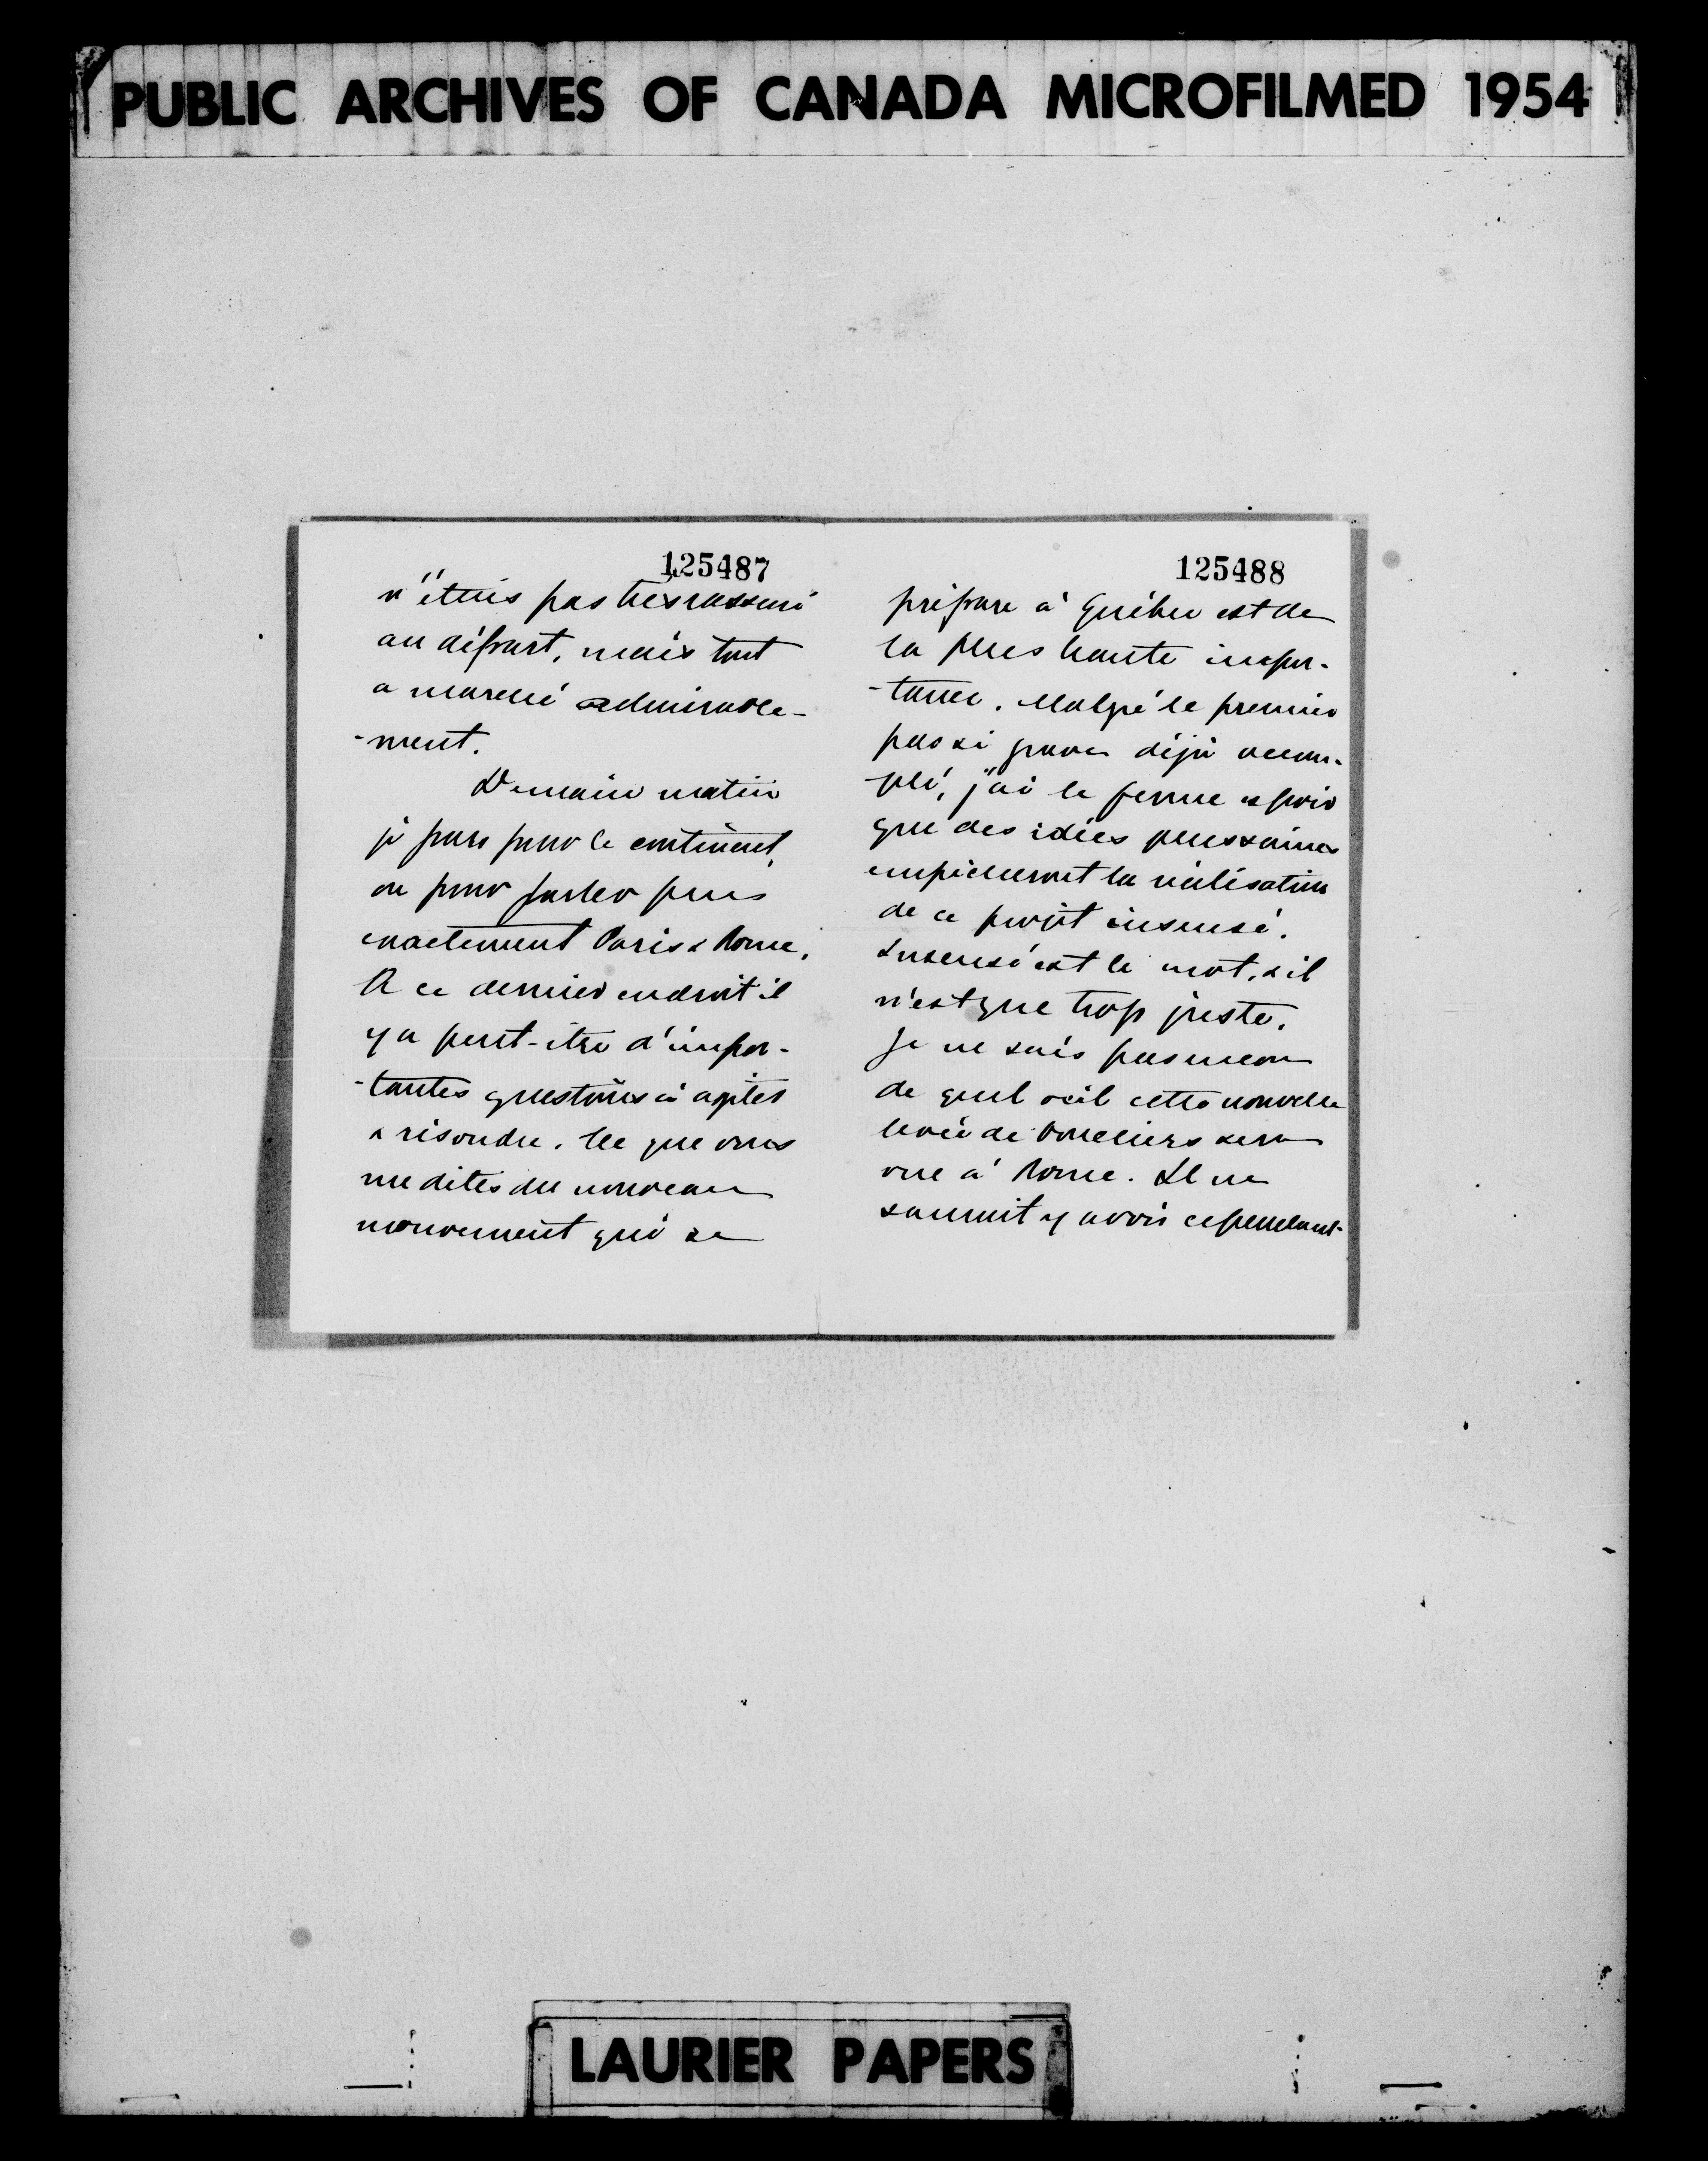 PUBLIC ARCHIVES OF CANADA MICROFILMED 1954
125487
n'étais pas très rassuré
au départ, mais tout
a marché admirable-
-ment.
Demain matin
je pars pour le continent,
ou pour parler plus
exactement Paris & Rome.
A ce dernier endroit il
y a peut-être d'impor-
-tantes questions à agiter
& résoudre. Ce que vous
me dites du nouveau
mouvement qui se
125488
prépare à Québec est de
la plus haute impor-
-tance. Malgré le premier
pas si grave déjà accom-
pli, j'ai le ferme espoir
que des idées plus saines
empêcheront la réalisation
de ce projet insensé.
Insensé est le mot, & il
n'est que trop juste.
Je ne sais pas encore
de quel œil cette nouvelle
levée de boucliers sera
vue à Rome. Il ne
saurait y avoir cependant
LAURIER PAPERS